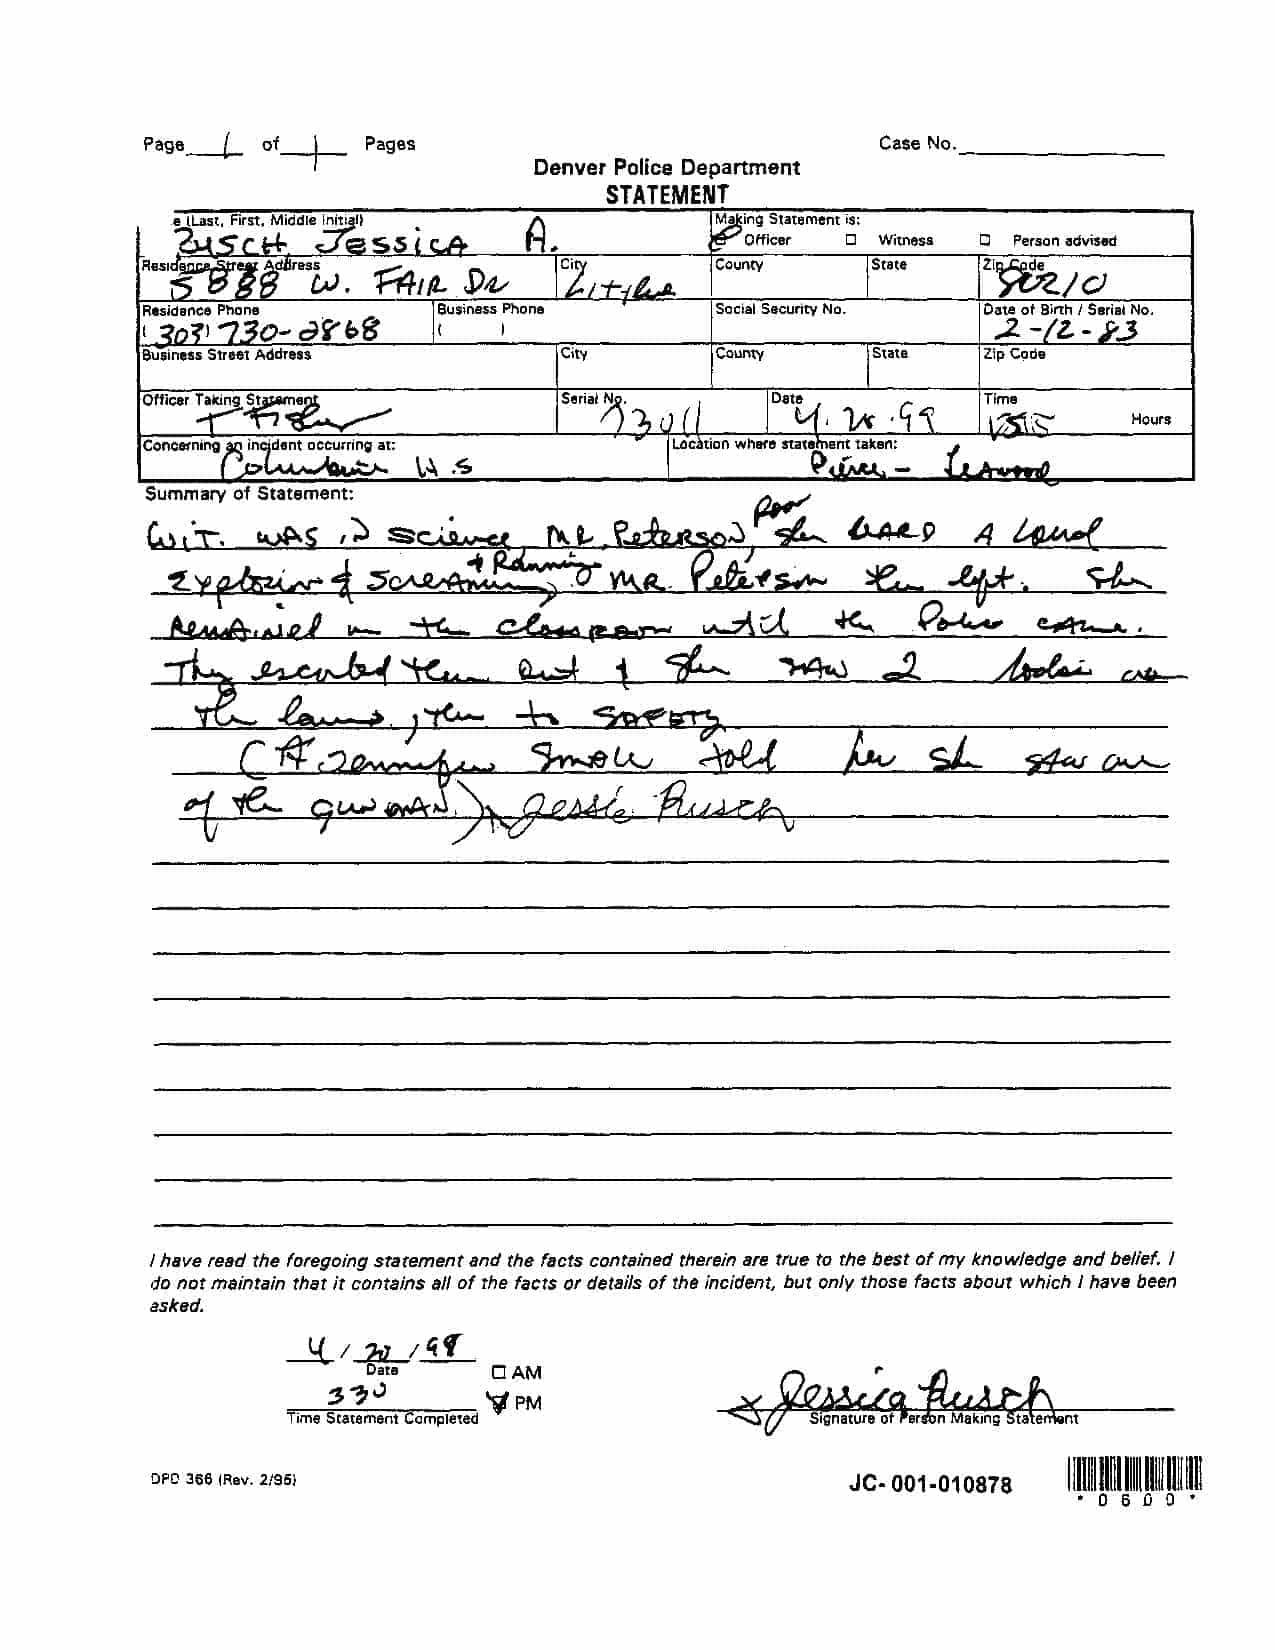 Page 1 of 1 Pages Case No.
Denver Police Department
STATEMENT
e (Last, First, Middle Initial) Making Statement is:
Rusch Jessica A. Officer Witness Person advised
Residence Street Address City County State Zip Code
5888 W. FAIR DR 80210
Residence Phone Business Phone Social Security No. Date of Birth / Serial No.
(303) 730-2868 ( ) 2-12-83
Business Street Address City County State Zip Code
Officer Taking Statement Serial No. Date Time
4.20.99 Hours
Concerning an incident occurring at: Location where statement taken:
H.S Pierce - Leawood
Summary of Statement:
WIT. WAS IN SCIENCE MR. PETERSON Room she HEARD A Loud
Explosion & Screaming + Running Mr. Peterson then left. She
Remained in the classroom until the Police came.
They escorted them out & she SAW 2 bodies on
the lawn, then to SAFETY
(A Jennifer Smolu told her she saw one
of the gunman.) Jessie Rusch
I have read the foregoing statement and the facts contained therein are true to the best of my knowledge and belief. I
do not maintain that it contains all of the facts or details of the incident, but only those facts about which I have been
asked.
4 / 20 / 99
Date AM
330 PM
Time Statement Completed
x Jessica Rusch
Signature of Person Making Statement
DPD 366 (Rev. 2/95) JC-001-010878
* 0 6 0 0 *